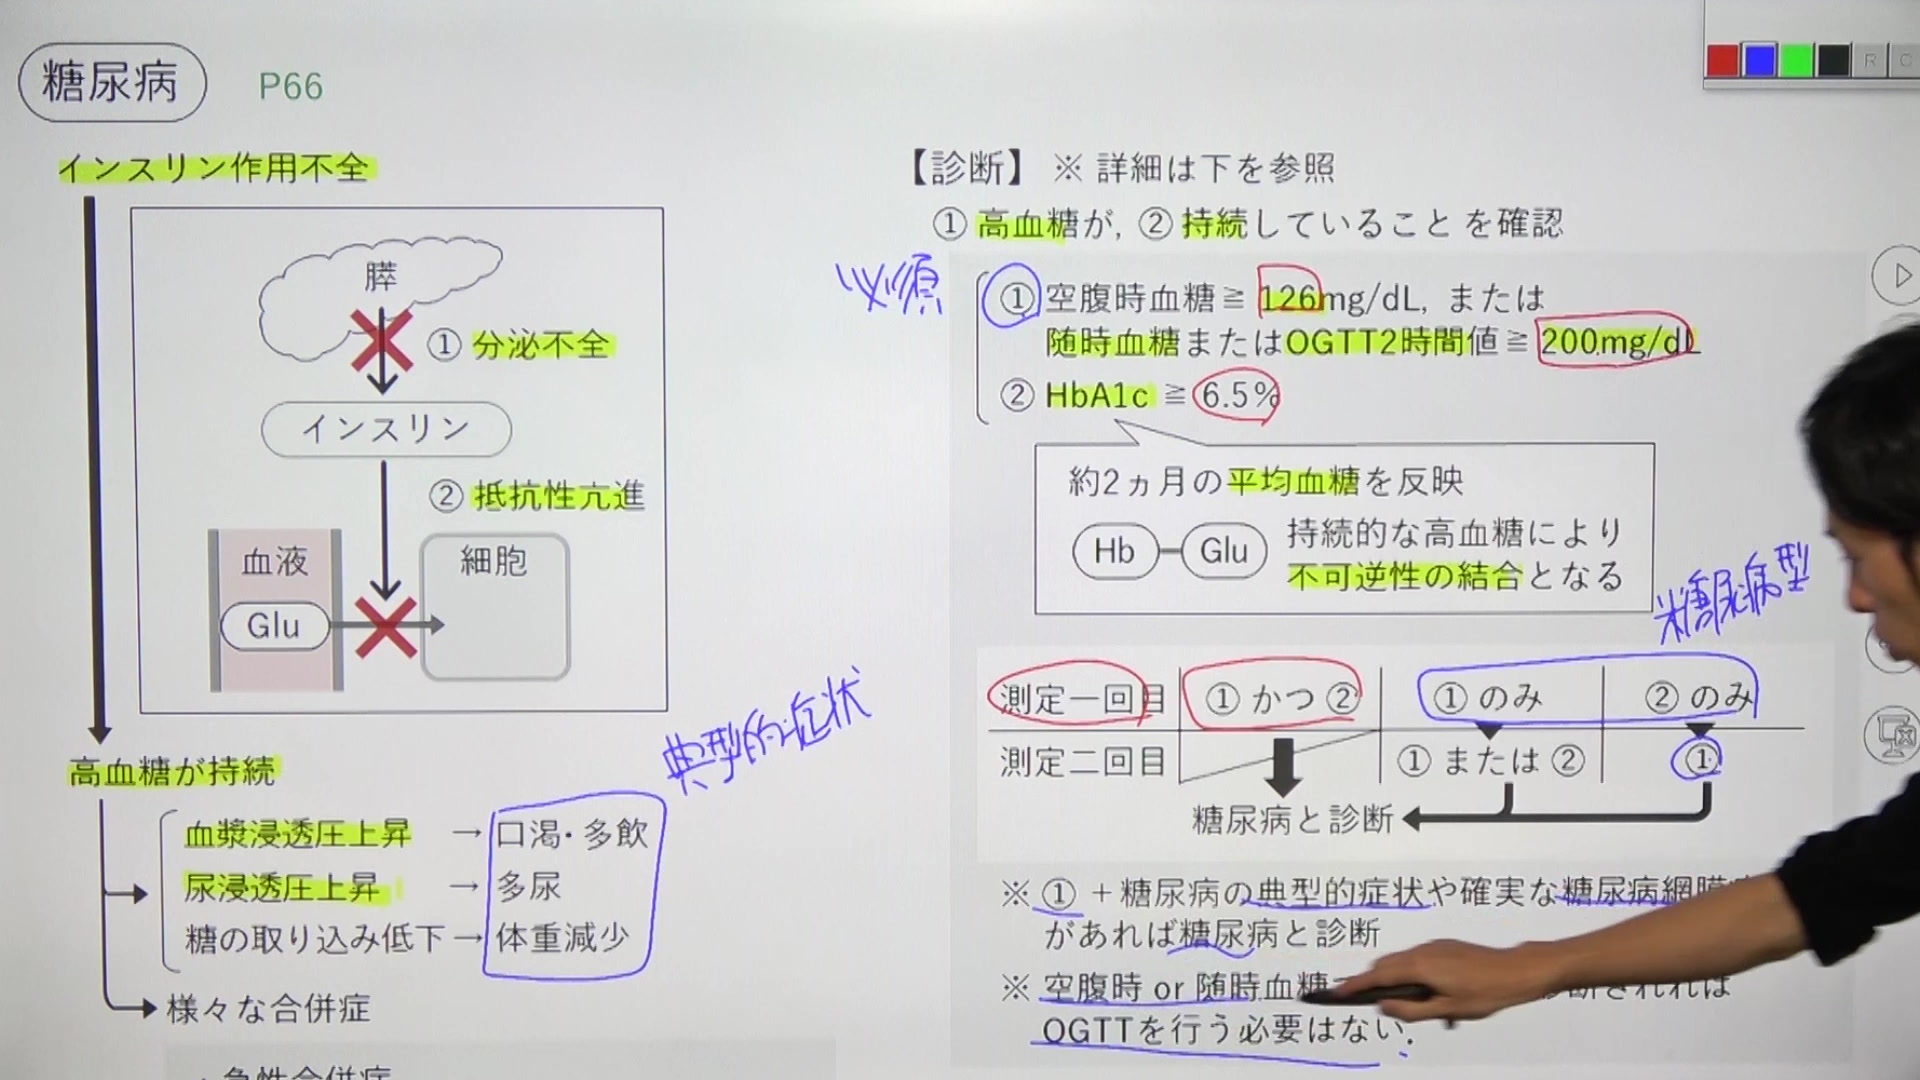 糖尿病 P66
インスリン作用不全
膵
① 分泌不全
インスリン
② 抵抗性亢進
血液
細胞
Glu
高血糖が持続
典型的症状
血漿浸透圧上昇 → 口渇・多飲
尿浸透圧上昇 → 多尿
糖の取り込み低下 → 体重減少
様々な合併症
【診断】 ※ 詳細は下を参照
① 高血糖が, ② 持続していること を確認
必須
① 空腹時血糖≧ 126mg/dL, または
随時血糖またはOGTT2時間値≧ 200mg/dL
② HbA1c ≧ 6.5%
約2ヵ月の平均血糖を反映
Hb Glu 持続的な高血糖により
不可逆性の結合となる
糖尿病型
測定一回目 ① かつ ② ① のみ ② のみ
測定二回目 ① または ② ①
糖尿病と診断
※ ① + 糖尿病の典型的症状や確実な糖尿病網膜
があれば糖尿病と診断
※ 空腹時 or 随時血糖 診断されれば
OGTTを行う必要はない.
急性合併症
R